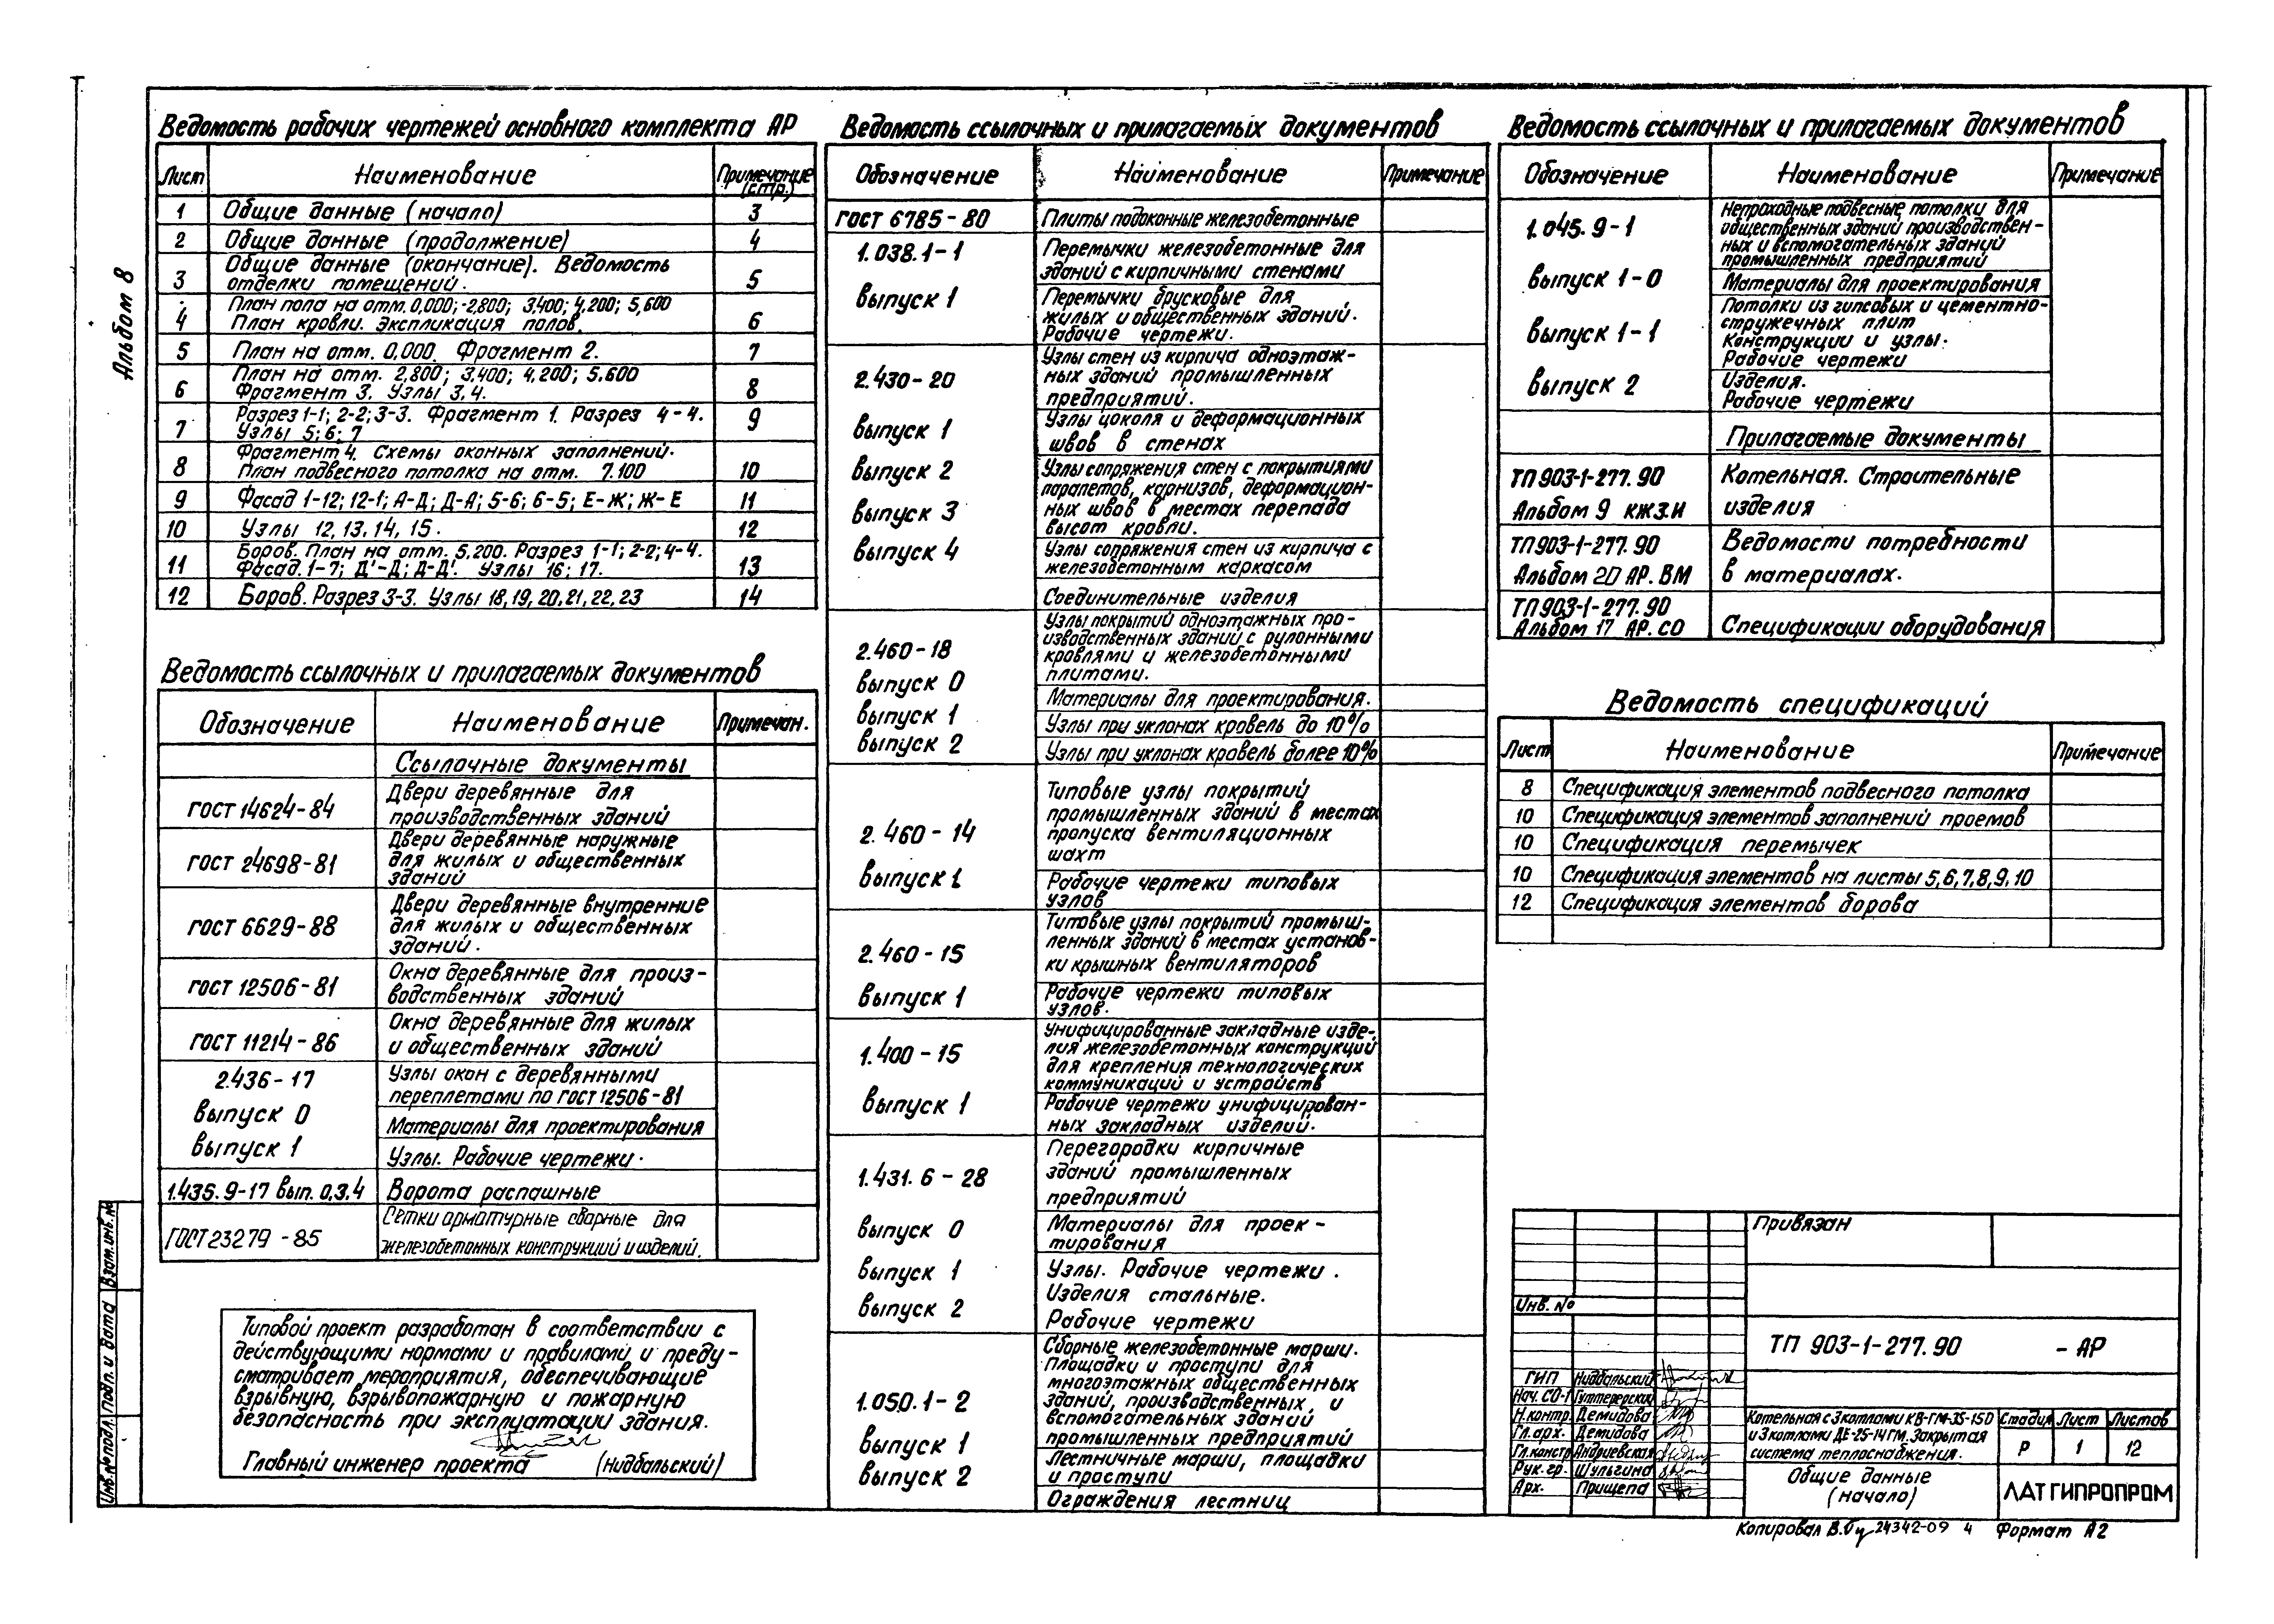 Альбом 8
Ведомость рабочих чертежей основного комплекта АР
Лист Наименование Примечание (стр.)
1 Общие данные (начало) 3
2 Общие данные (продолжение) 4
3 Общие данные (окончание). Ведомость
отделки помещений. 5
4 План пола на отм. 0,000; -2,800; 3,400; 4,200; 5,600
План кровли. Экспликация полов. 6
5 План на отм. 0,000. Фрагмент 2. 7
6 План на отм. 2,800; 3,400; 4,200; 5.600
Фрагмент 3. Узлы 3,4. 8
7 Разрез 1-1; 2-2; 3-3. Фрагмент 1. Разрез 4-4.
Узлы 5; 6; 7 9
8 Фрагмент 4. Схемы оконных заполнений.
План подвесного потолка на отм. 7.100 10
9 Фасад 1-12; 12-1; А-Д; Д-А; 5-6; 6-5; Е-Ж; Ж-Е 11
10 Узлы 12, 13, 14, 15. 12
11 Боров. План на отм. 5.200. Разрез 1-1; 2-2; 4-4.
Фасад. 1-7; Д'-Д; Д-Д'. Узлы 16; 17. 13
12 Боров. Разрез 3-3. Узлы 18, 19, 20, 21, 22, 23 14
Ведомость ссылочных и прилагаемых документов
Обозначение Наименование Примечан.
Ссылочные документы
ГОСТ 14624-84 Двери деревянные для
производственных зданий
ГОСТ 24698-81 Двери деревянные наружные
для жилых и общественных
зданий
ГОСТ 6629-88 Двери деревянные внутренние
для жилых и общественных
зданий.
ГОСТ 12506-81 Окна деревянные для произ-
водственных зданий
ГОСТ 11214-86 Окна деревянные для жилых
и общественных зданий
2.436-17 Узлы окон с деревянными
переплетами по ГОСТ 12506-81
выпуск 0 Материалы для проектирования
выпуск 1 Узлы. Рабочие чертежи.
1.435.9-17 вып. 0,3,4 Ворота распашные
ГОСТ 23279-85 Сетки арматурные сварные для
железобетонных конструкций и изделий.
Типовой проект разработан в соответствии с
действующими нормами и правилами и преду-
сматривает мероприятия, обеспечивающие
взрывную, взрывопожарную и пожарную
безопасность при эксплуатации здания.
Главный инженер проекта (Нидбальский)
Ведомость ссылочных и прилагаемых документов
Обозначение Наименование Примечание
ГОСТ 6785-80 Плиты подоконные железобетонные
1.038.1-1 Перемычки железобетонные для
зданий с кирпичными стенами
выпуск 1 Перемычки брусковые для
жилых и общественных зданий.
Рабочие чертежи.
2.430-20 Узлы стен из кирпича одноэтаж-
ных зданий промышленных
предприятий.
выпуск 1 Узлы цоколя и деформационных
швов в стенах
выпуск 2 Узлы сопряжения стен с покрытиями
парапетов, карнизов, деформацион-
выпуск 3 ных швов в местах перепада
высот кровли.
выпуск 4 Узлы сопряжения стен из кирпича с
железобетонным каркасом
Соединительные изделия
2.460-18 Узлы покрытий одноэтажных про-
изводственных зданий с рулонными
кровлями и железобетонными
плитами.
выпуск 0 Материалы для проектирования.
выпуск 1 Узлы при уклонах кровель до 10%
выпуск 2 Узлы при уклонах кровель более 10%
2.460-14 Типовые узлы покрытий
промышленных зданий в местах
пропуска вентиляционных
шахт
выпуск 1 Рабочие чертежи типовых
узлов
2.460-15 Типовые узлы покрытий промыш-
ленных зданий в местах установ-
ки крышных вентиляторов
выпуск 1 Рабочие чертежи типовых
узлов.
1.400-15 Унифицированные закладные изде-
лия железобетонных конструкций
для крепления технологических
коммуникаций и устройств
выпуск 1 Рабочие чертежи унифицирован-
ных закладных изделий.
1.431.6-28 Перегородки кирпичные
зданий промышленных
предприятий
выпуск 0 Материалы для проек-
тирования
выпуск 1 Узлы. Рабочие чертежи.
выпуск 2 Изделия стальные.
Рабочие чертежи
1.050.1-2 Сборные железобетонные марши.
Площадки и проступи для
многоэтажных общественных
зданий, производственных, и
вспомогательных зданий
промышленных предприятий
выпуск 1 Лестничные марши, площадки
и проступи
выпуск 2 Ограждения лестниц
Ведомость ссылочных и прилагаемых документов
Обозначение Наименование Примечание
1.045.9-1 Непроходные подвесные потолки для
общественных зданий производствен-
ных и вспомогательных зданий
промышленных предприятий
выпуск 1-0 Материалы для проектирования
выпуск 1-1 Потолки из гипсовых и цементно-
стружечных плит
Конструкции и узлы.
Рабочие чертежи
выпуск 2 Изделия.
Рабочие чертежи
Прилагаемые документы
ТП 903-1-277.90 Котельная. Строительные
Альбом 9 КЖЗ.И изделия
ТП 903-1-277.90 Ведомости потребности
Альбом 20 АР. ВМ в материалах.
ТП 903-1-277.90
Альбом 17 АР. СО Спецификации оборудования
Ведомость спецификаций
Лист Наименование Примечание
8 Спецификация элементов подвесного потолка
10 Спецификация элементов заполнений проемов
10 Спецификация перемычек
10 Спецификация элементов на листы 5,6,7,8,9,10
12 Спецификация элементов борова
Привязан
Инв. №
ТП 903-1-277.90 - АР
ГИП Нидбальский
Нач. СО-1
Н.контр. Демидова
Гл.арх. Демидова
Гл.констр. Андриевская
Рук. гр. Шульгина
Арх. Прищепа
Котельная с 3 котлами КВ-ГМ-35-150
и 3 котлами ДЕ-25-14ГМ. Закрытая
система теплоснабжения.
Стадия Лист Листов
Р 1 12
Общие данные
(начало)
ЛАТГИПРОПРОМ
Копировал 24342-09 4 Формат А2
Инв.№подл. Подп. и дата Взам.инв.№